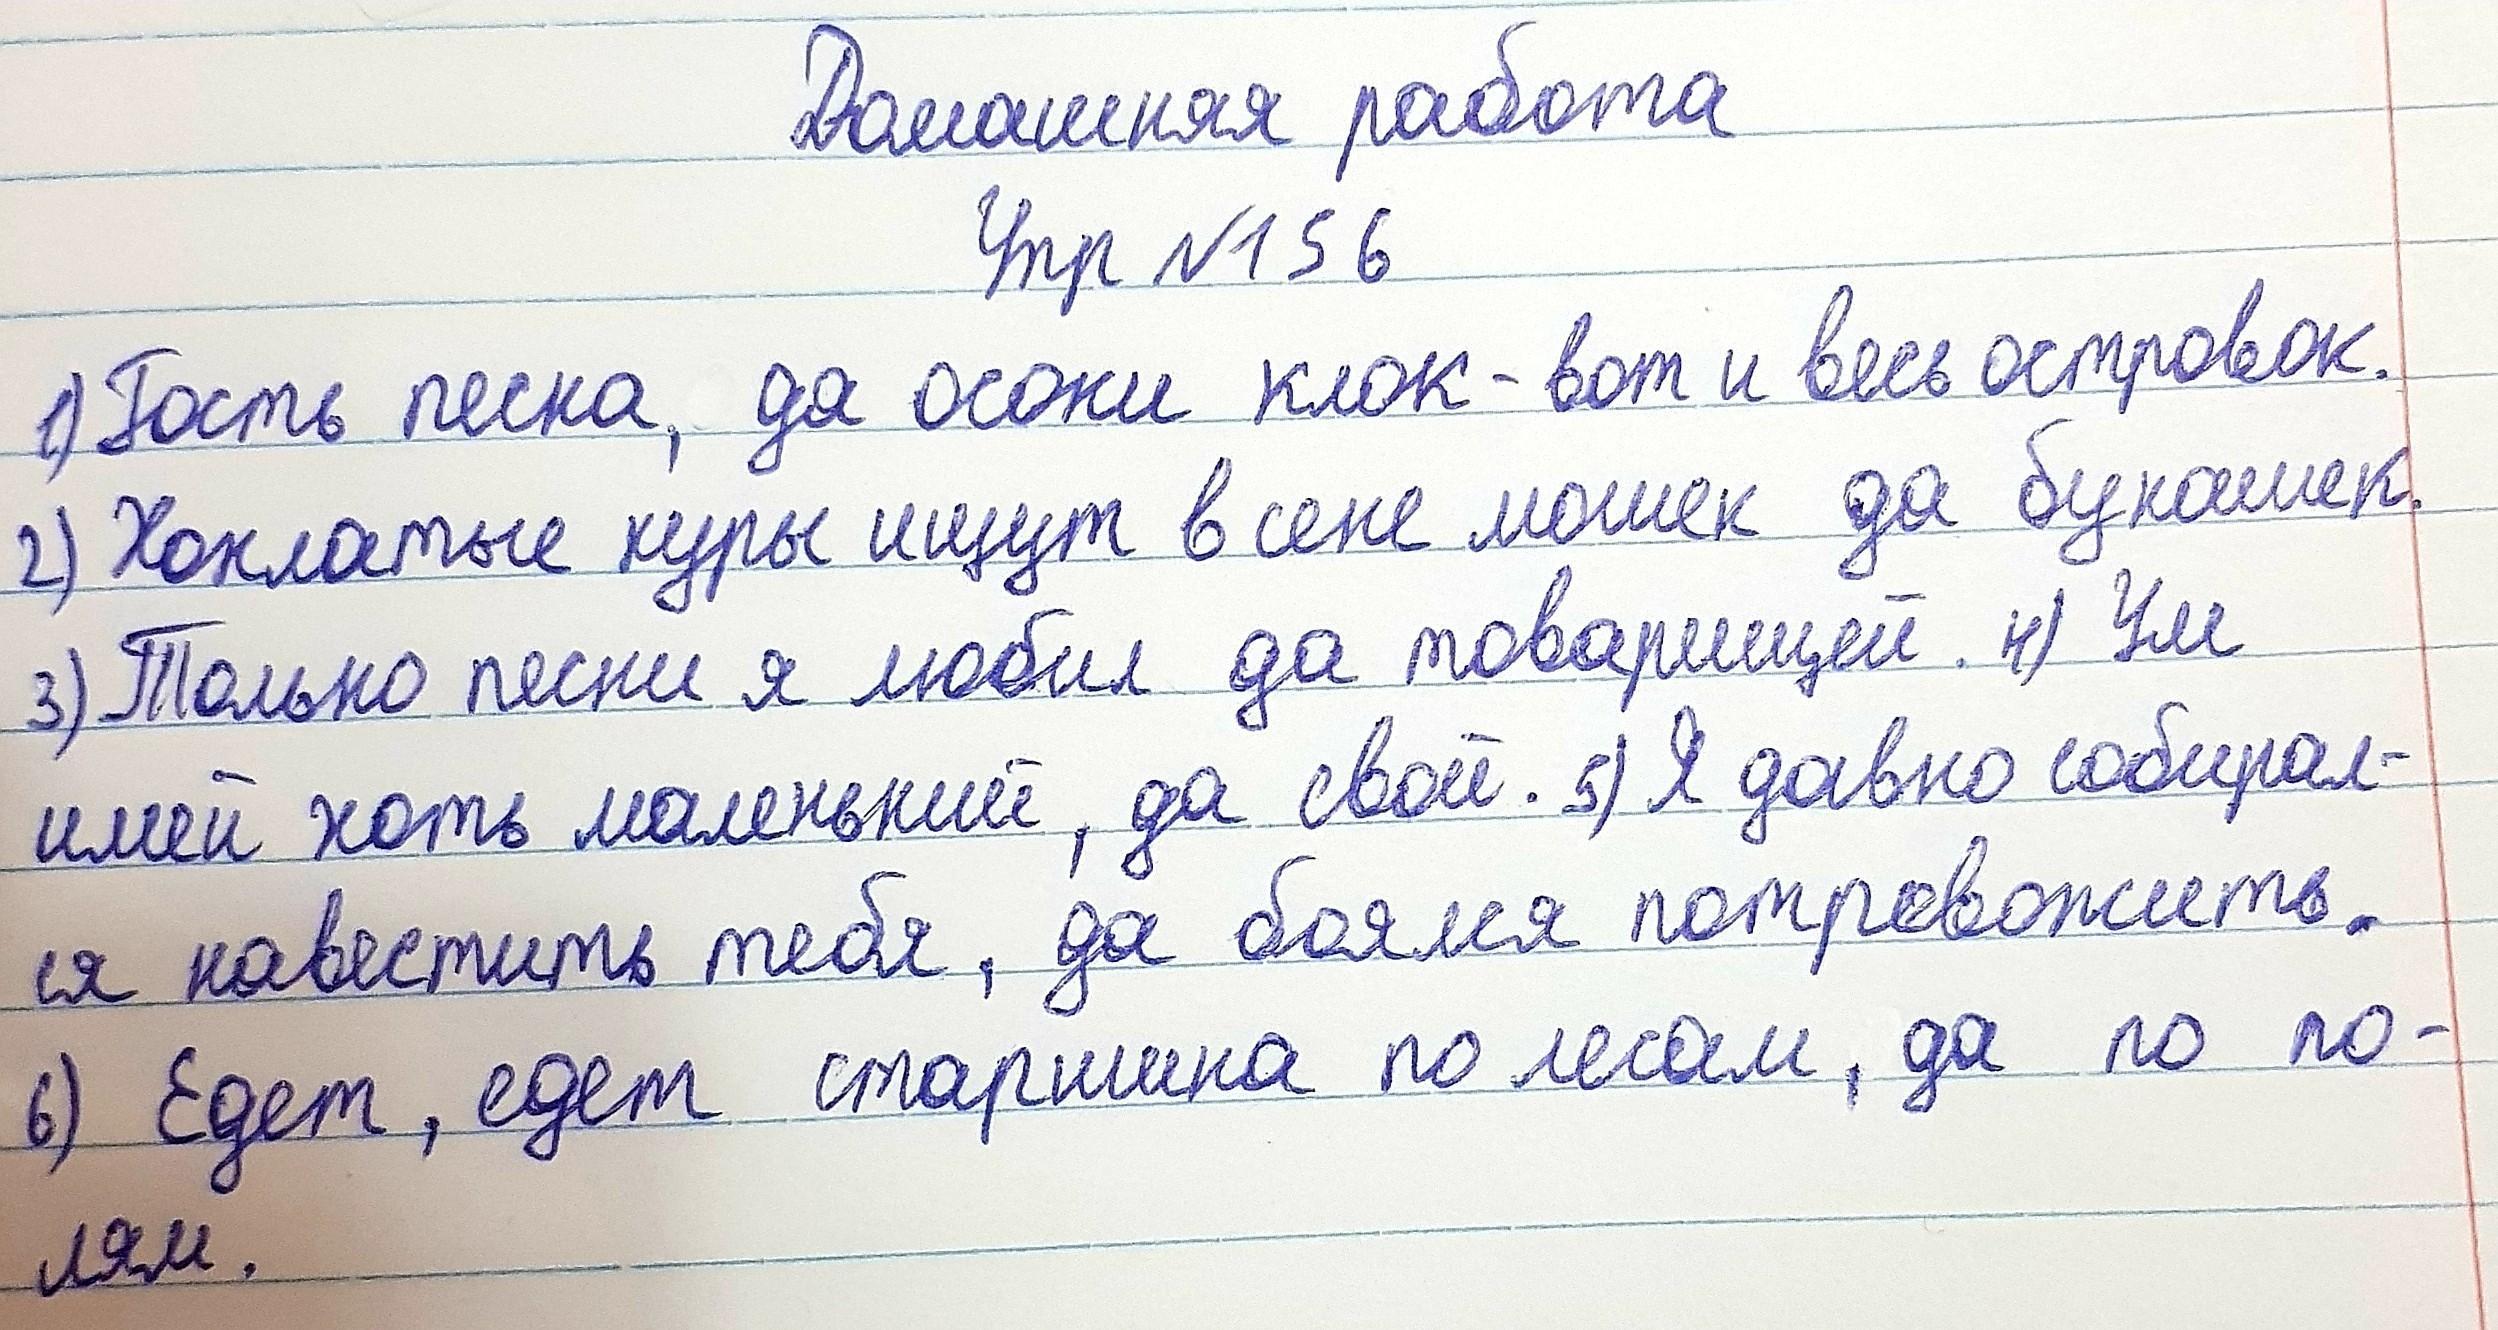 Домашняя работа
Упр №156
1) Гость песка, да осоки клок - вот и весь островок.
2) Хохлатые куры ищут в сене мошек да букашек.
3) Только песни я любил да товарищей. 4) Ум
имей хоть маленький, да свой. 5) Я давно собирал-
ся навестить тебя, да боялся потревожить.
6) Едет, едет старшина по лесам, да по по-
лям.